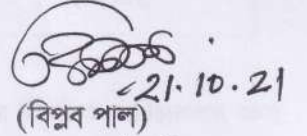 21.10.21
(বিপ্লব পাল)